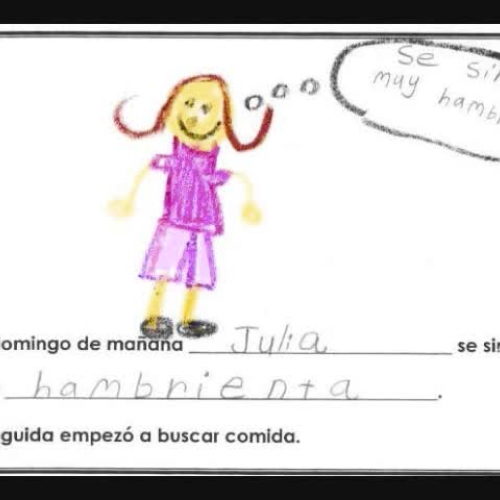 Se sin
muy hambr
omingo de mañana Julia se sin
hambrienta.
guida empezó a buscar comida.